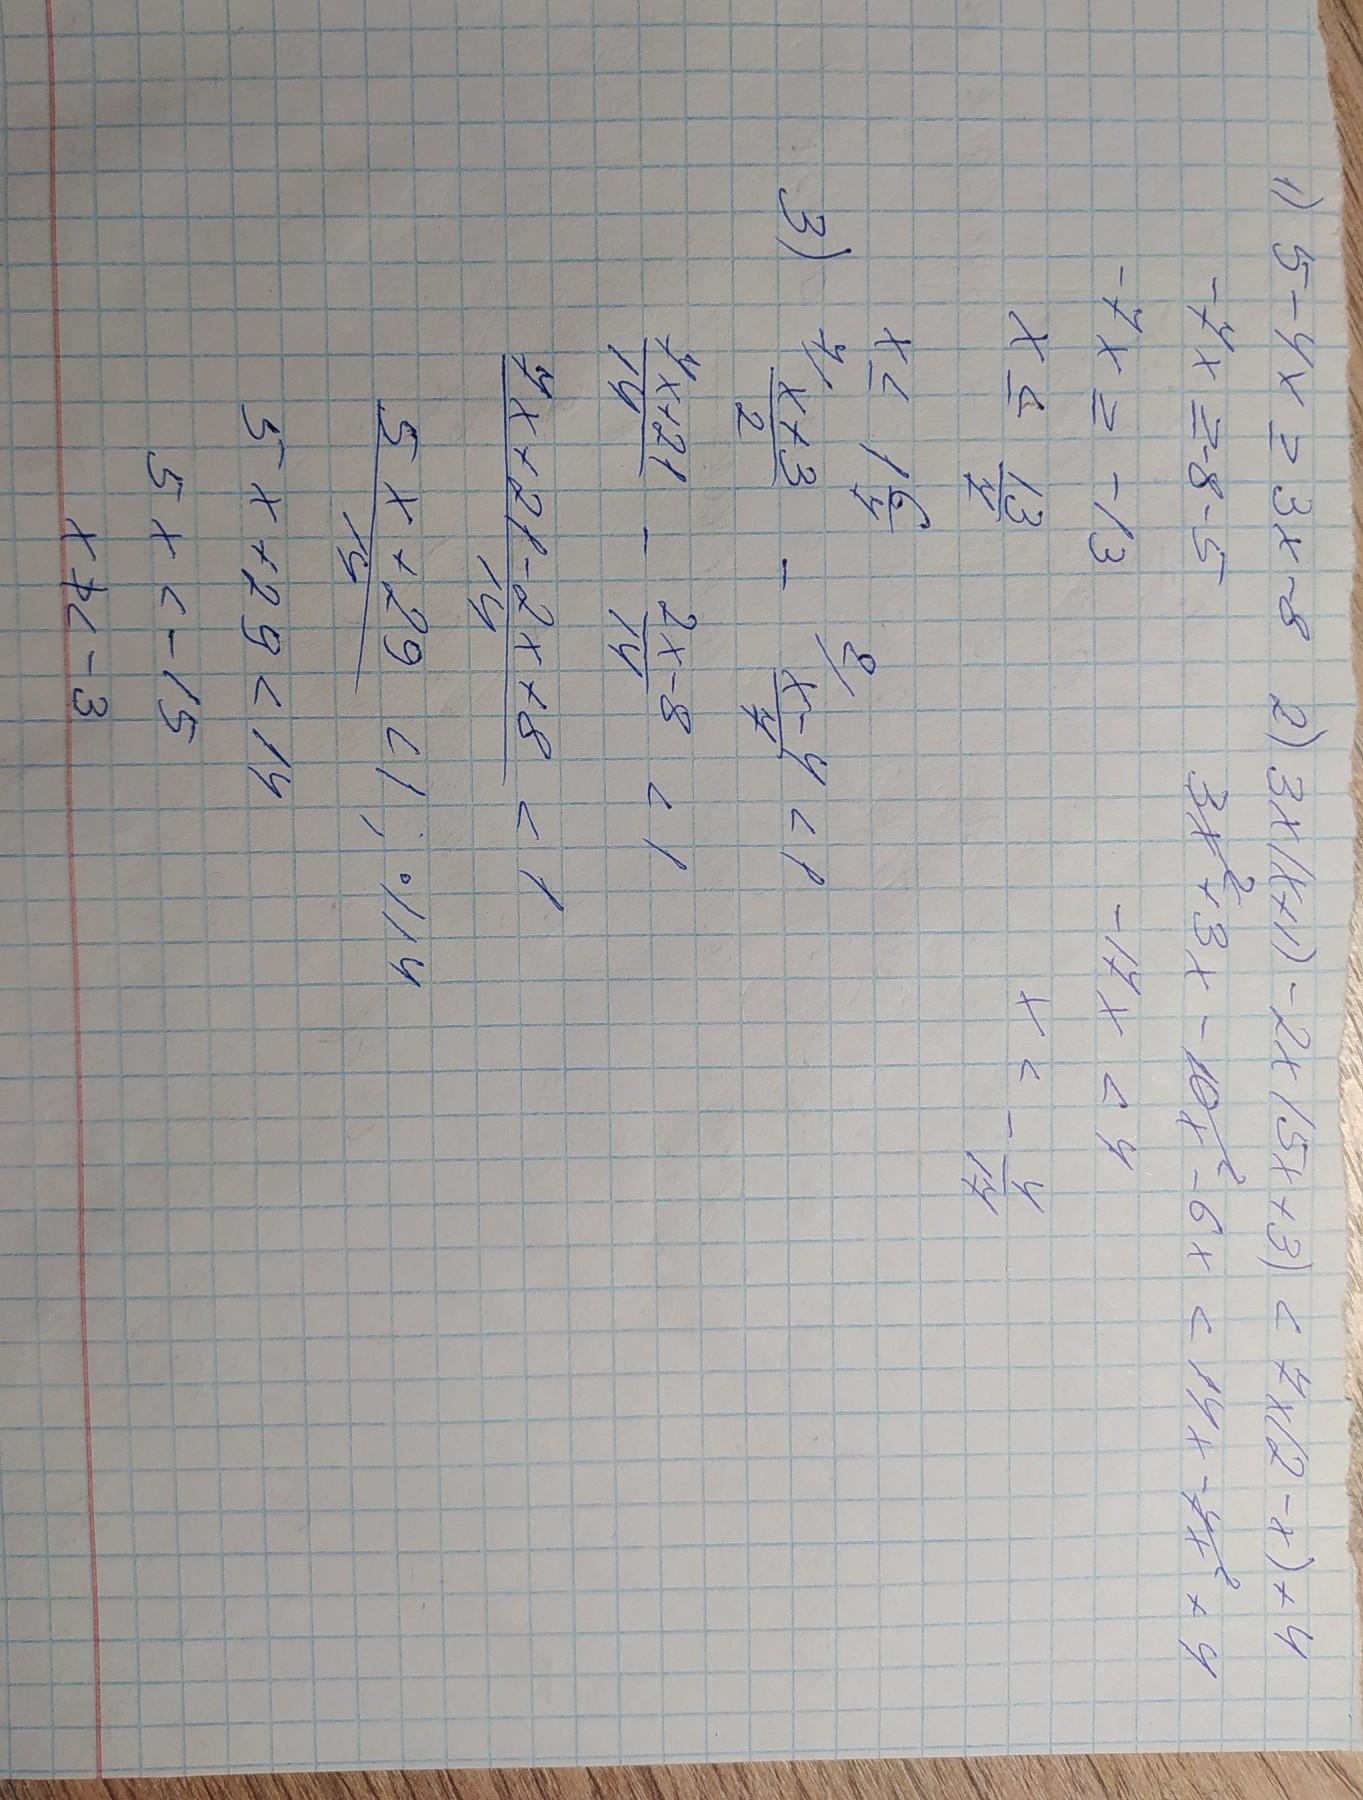 1) 5 - 4x ≥ 3x - 8
-7x ≥ -8 - 5
-7x ≥ -13
x ≤ 13/7
x ≤ 1 6/7
2) 3x(x+1) - 2x(5x+3) < 7x(2-x) + 4
3x² + 3x - 10x² - 6x < 14x - 7x² + 4
-17x < 4
x < - 4/17
3) 7/ x+3/2 - 2/ x-4/7 < 1
7x+21/14 - 2x-8/14 < 1
7x+21-2x+8/14 < 1
5x+29/14 < 1 ; ·//14
5x + 29 < 14
5x < -15
x < -3